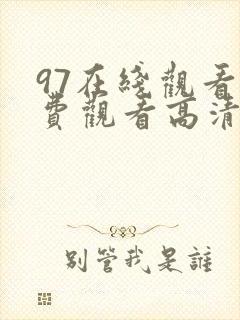 97在綫觀看
費觀看高清
别管我是誰